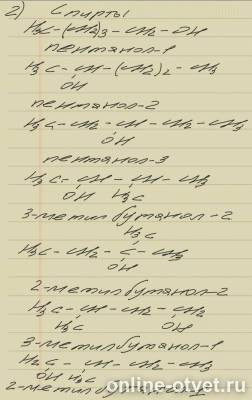 2) Спирты
H₃C-(CH₂)₃-CH₂-OH
пентанол-1
H₃C-CH-(CH₂)₂-CH₃
OH
пентанол-2
H₃C-CH₂-CH-CH₂-CH₃
OH
пентанол-3
H₃C-CH-CH-CH₃
OH H₃C
3-метилбутанол-2
H₃C
H₃C-CH₂-C-CH₃
OH
2-метилбутанол-2
H₃C-CH-CH₂-CH₂
H₃C OH
3-метилбутанол-1
H₂C-CH-CH₂-CH₃
OH H₃C
2-метилбутанол-1
online-otvet.ru